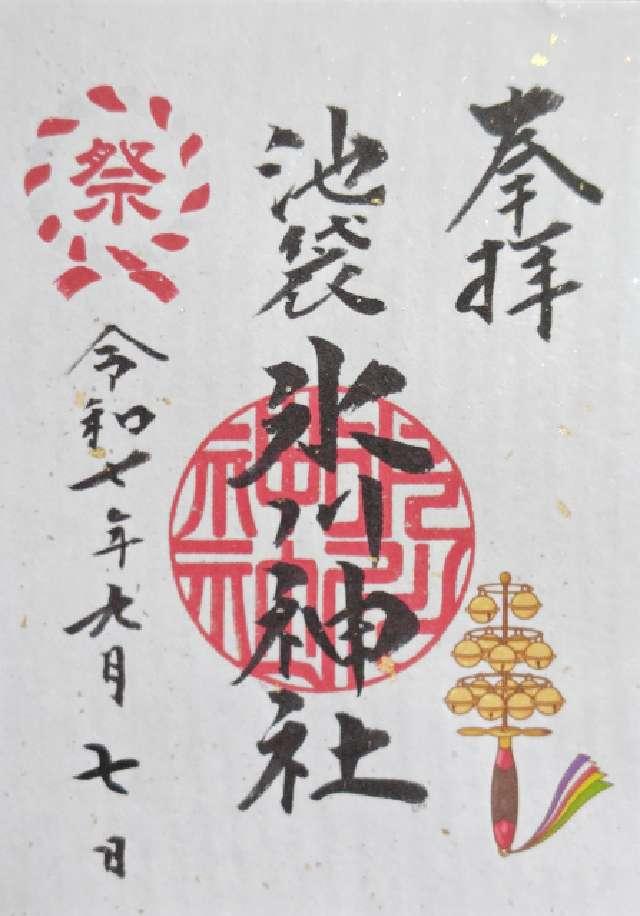 奉拝
池袋氷川神社
祭
令和七年九月七日